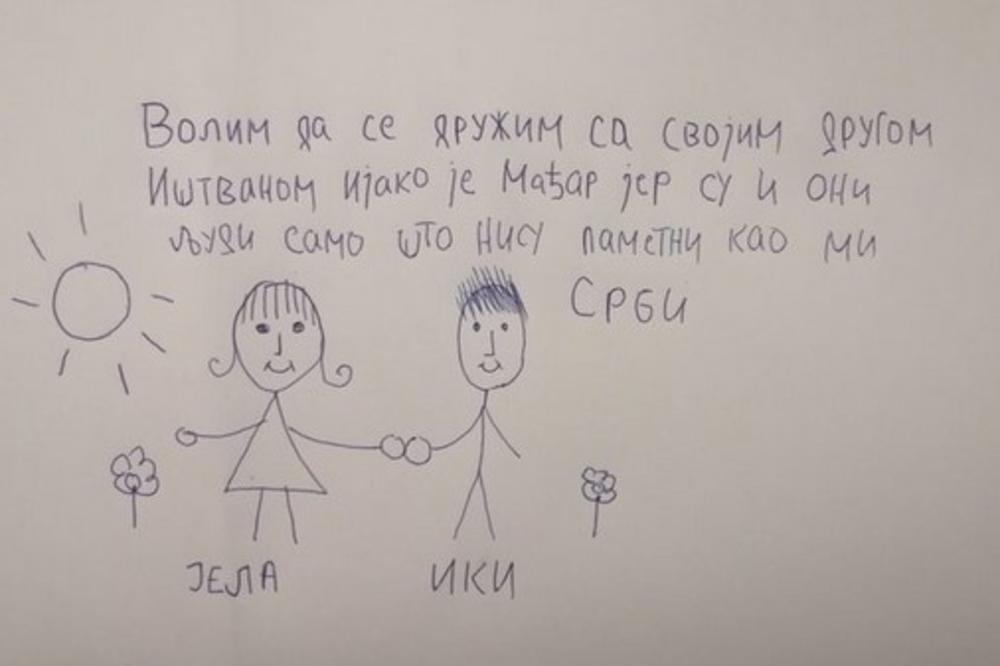 Волим да се дружим са својим другом
Иштваном ијако је Мађар јер су и они
људи само што нису паметни као ми
Срби
ЈЕЛА ИКИ